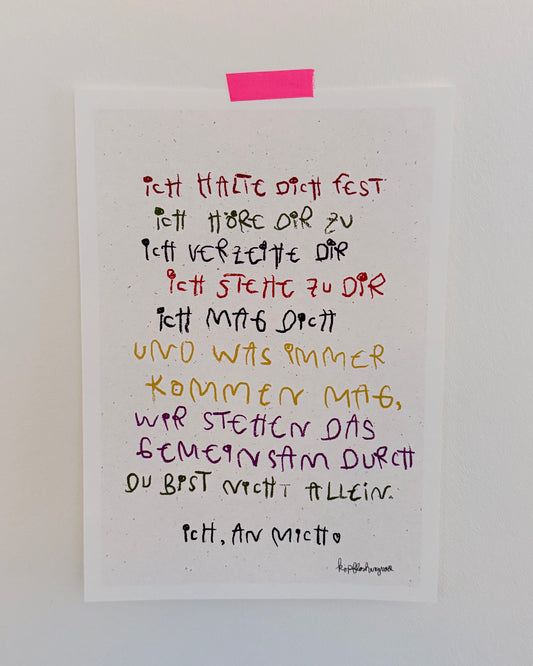 ICH HALTE DICH FEST
ICH HÖRE DIR ZU
ICH VERZEIHE DIR
ICH STEHE ZU DIR
ICH MAG DICH
UND WAS IMMER
KOMMEN MAG,
WIR STEHEN DAS
GEMEINSAM DURCH
DU BIST NICHT ALLEIN.
ICH, AN MICH.